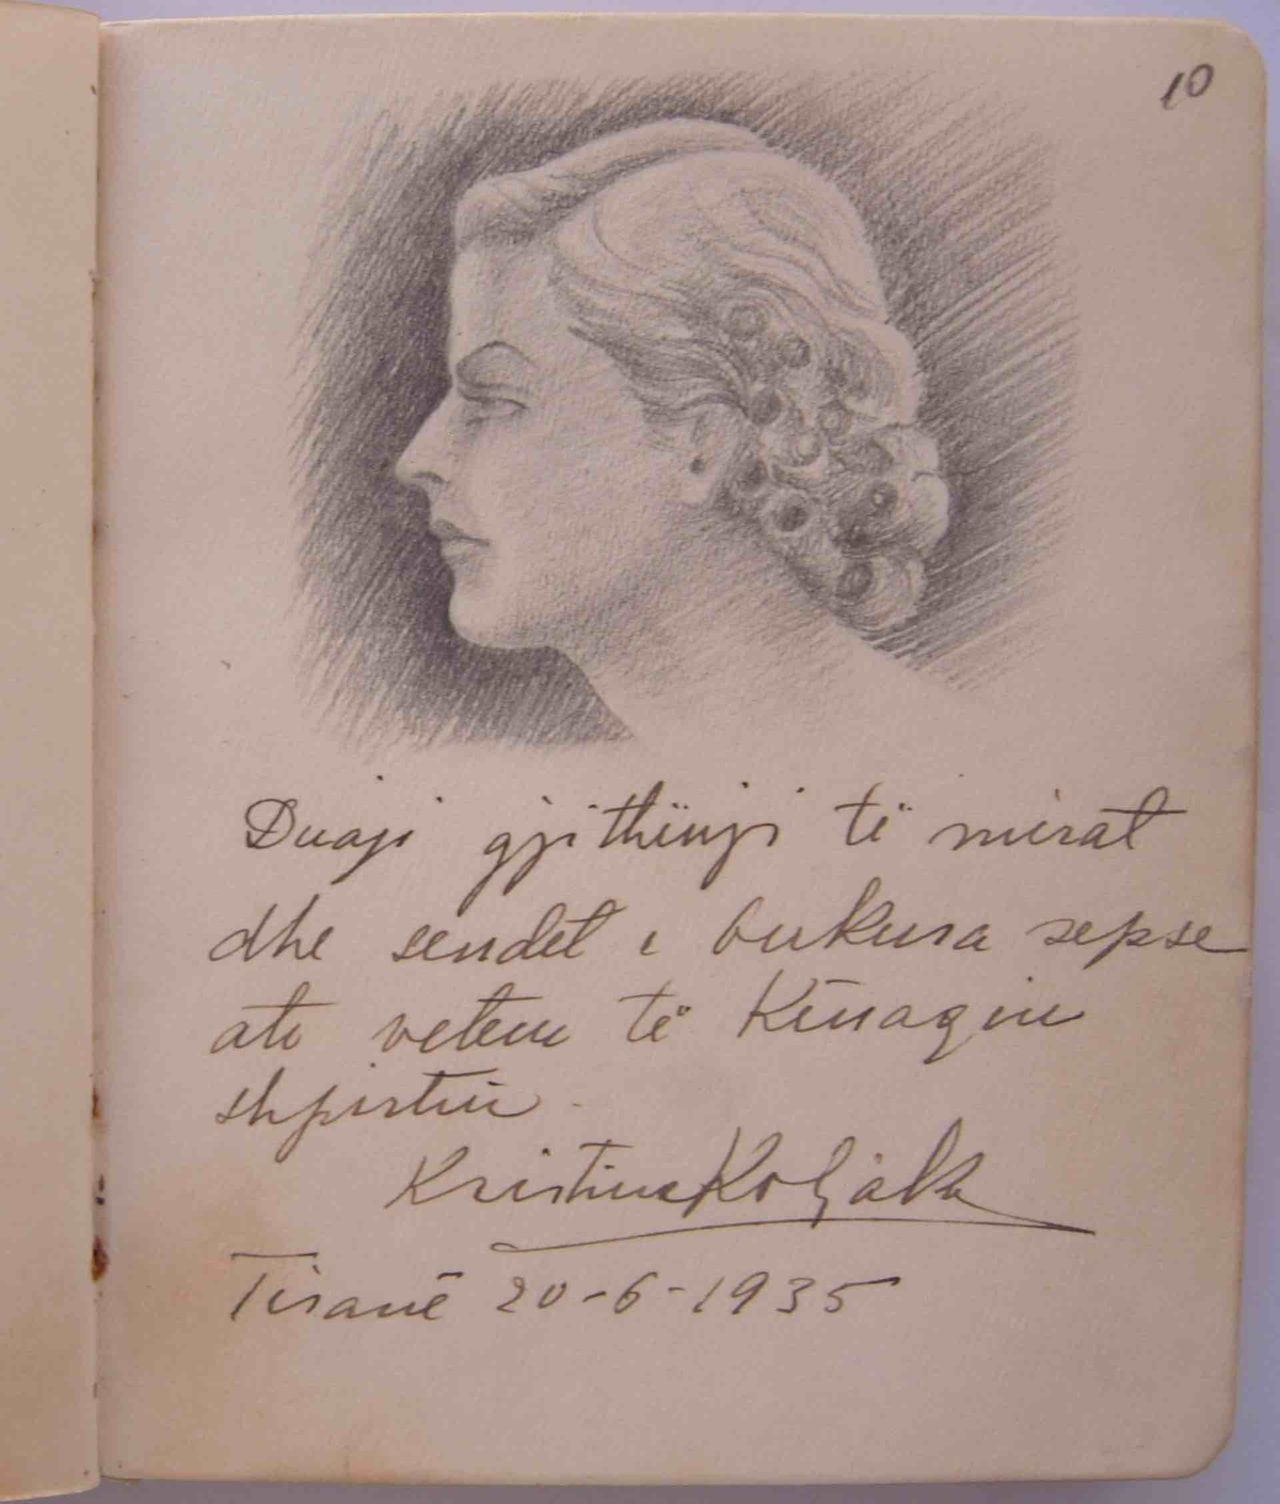 10
Duaji gjithënji të mirat
dhe sendet e bukura sepse
ato vetem të Kënaqin
shpirtin.
Kristina Koljaka
Tiranë 20-6-1935